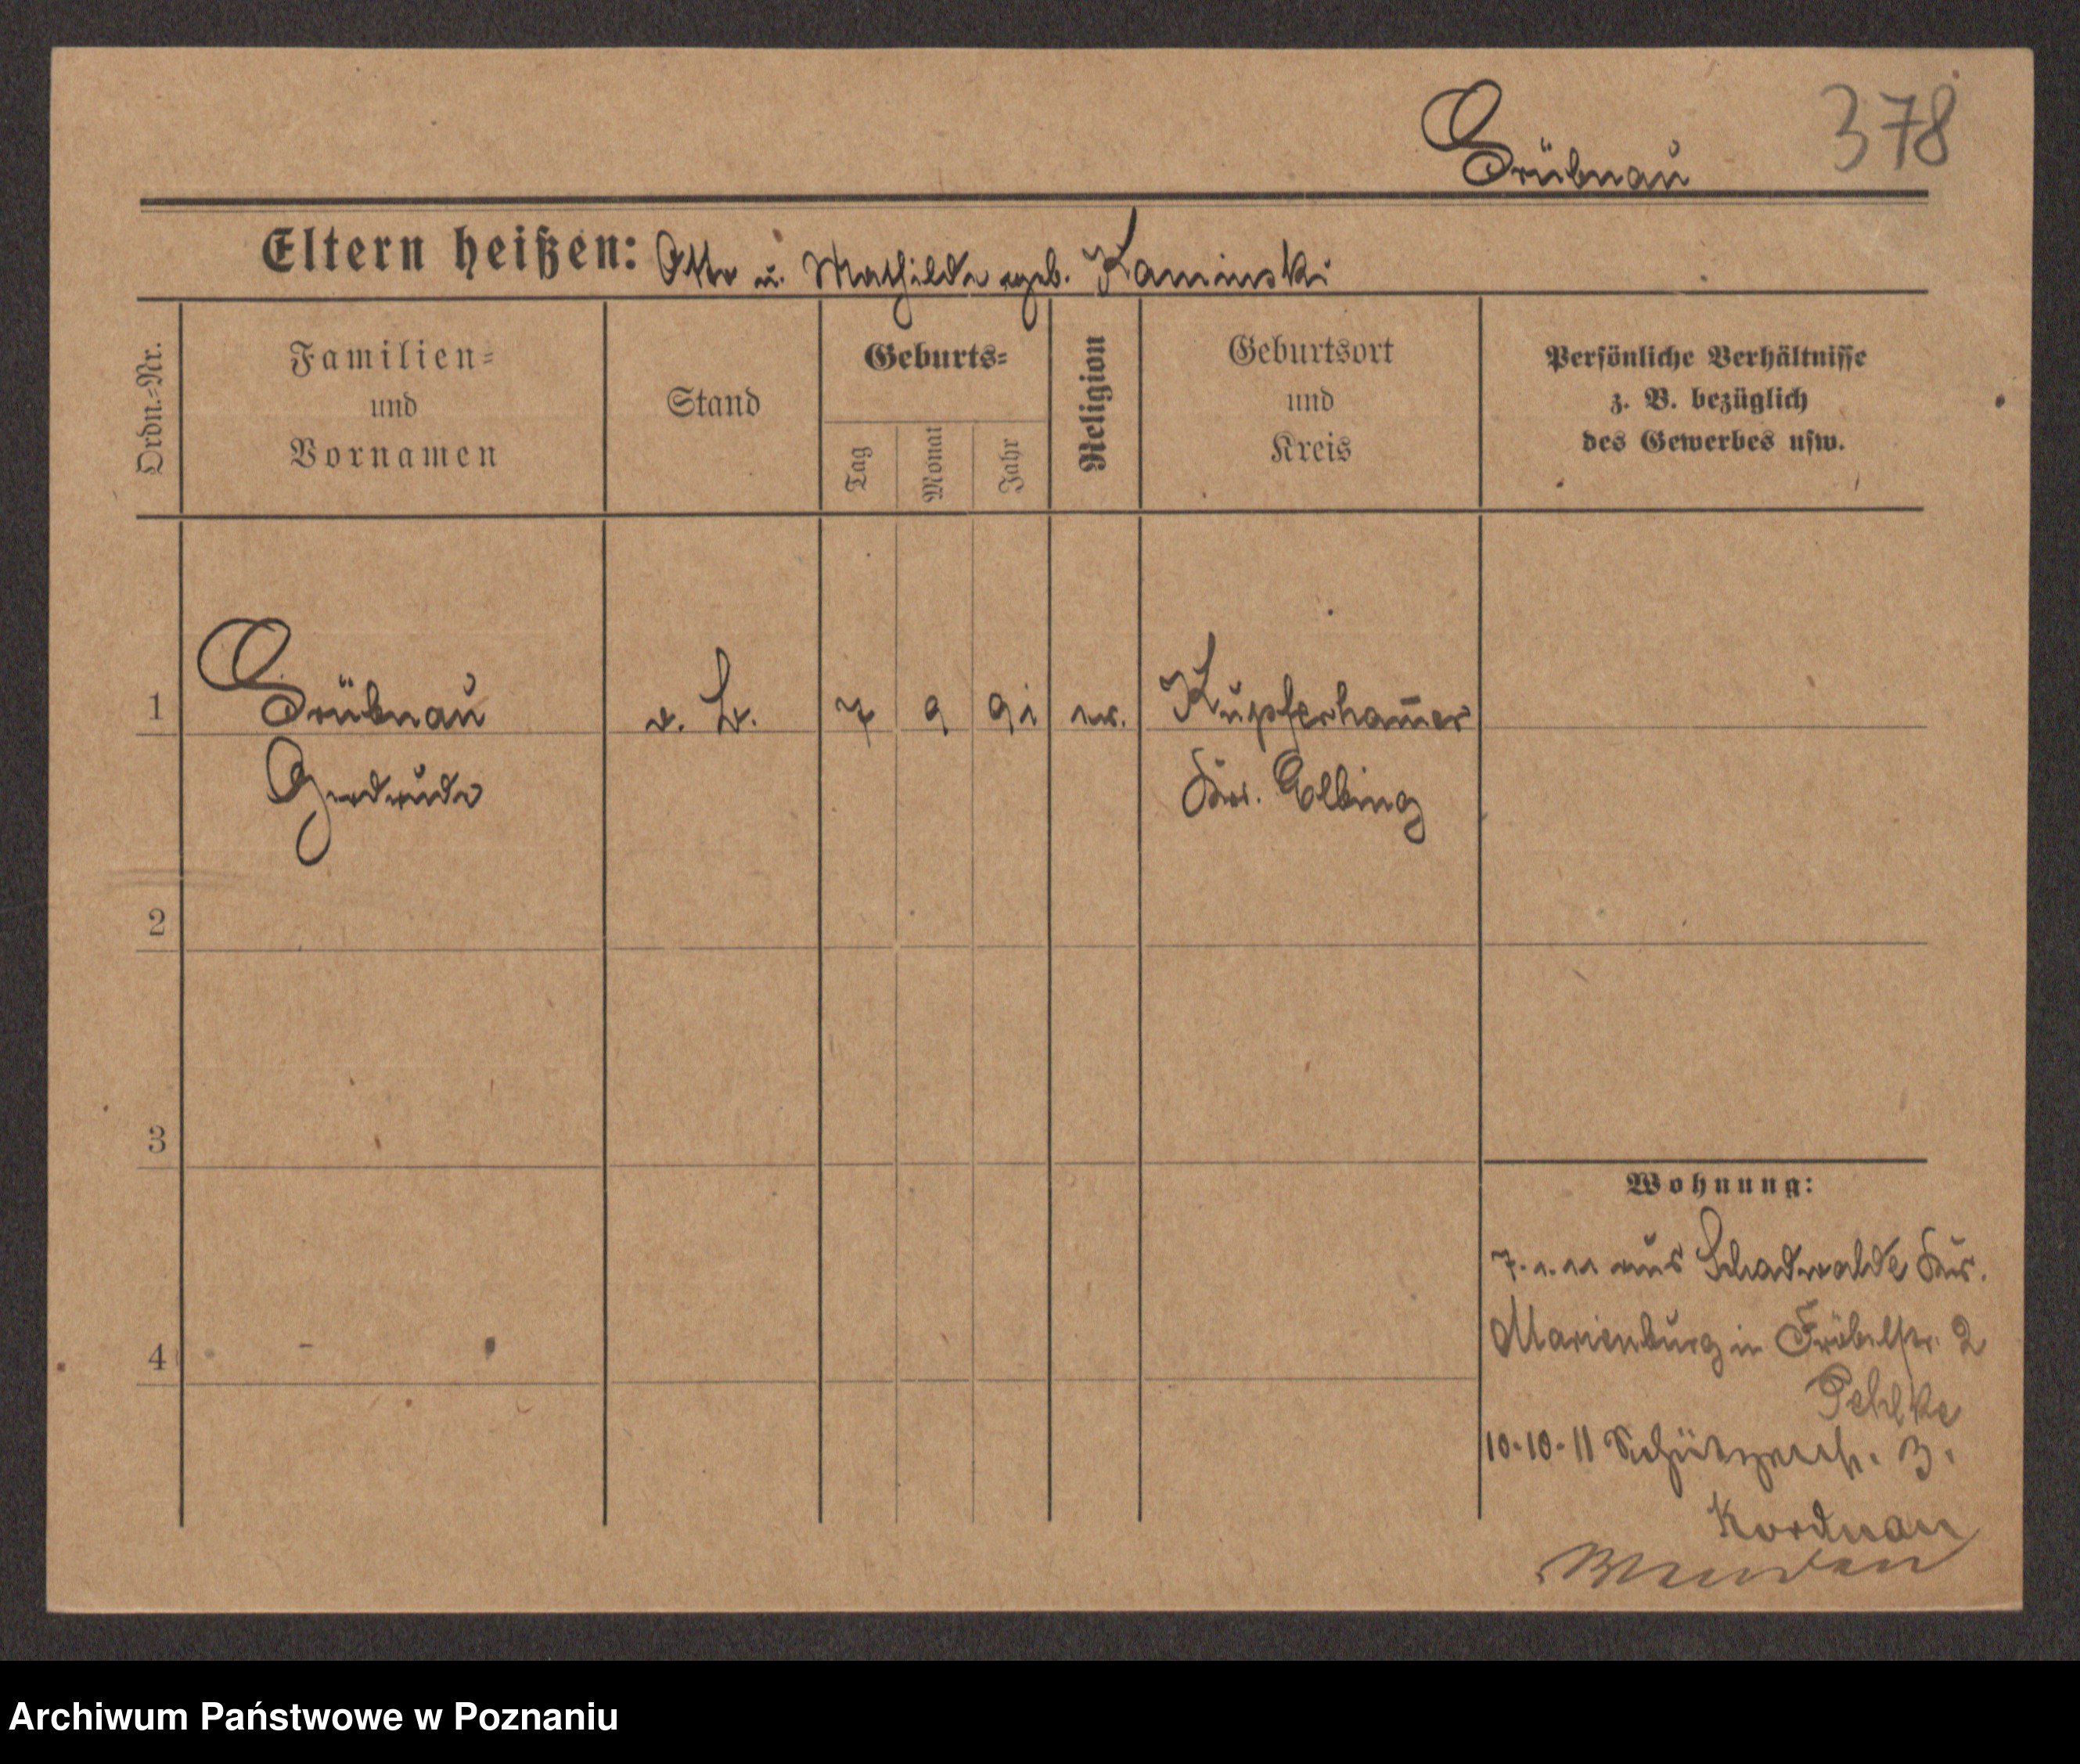 Grübnau 378
Eltern heißen: Otto u. Mathilde geb. Kaminski
Ordn.=Nr.
Familien=
und
Vornamen
Stand
Geburts=
Tag
Monat
Jahr
Religion
Geburtsort
und
Kreis
Persönliche Verhältnisse
z. B. bezüglich
des Gewerbes usw.
1 Grübnau 7 9 91 ev. Kupferham̅er
Gertrude Kr. Elbing
2
3
4
Wohnung:
7.1.11 aus Schadwalde Kr.
Marienburg in Fröbelstr. 2
Pehlke
10.10.11 Schützenstr. 3.
Kordnau
Archiwum Państwowe w Poznaniu